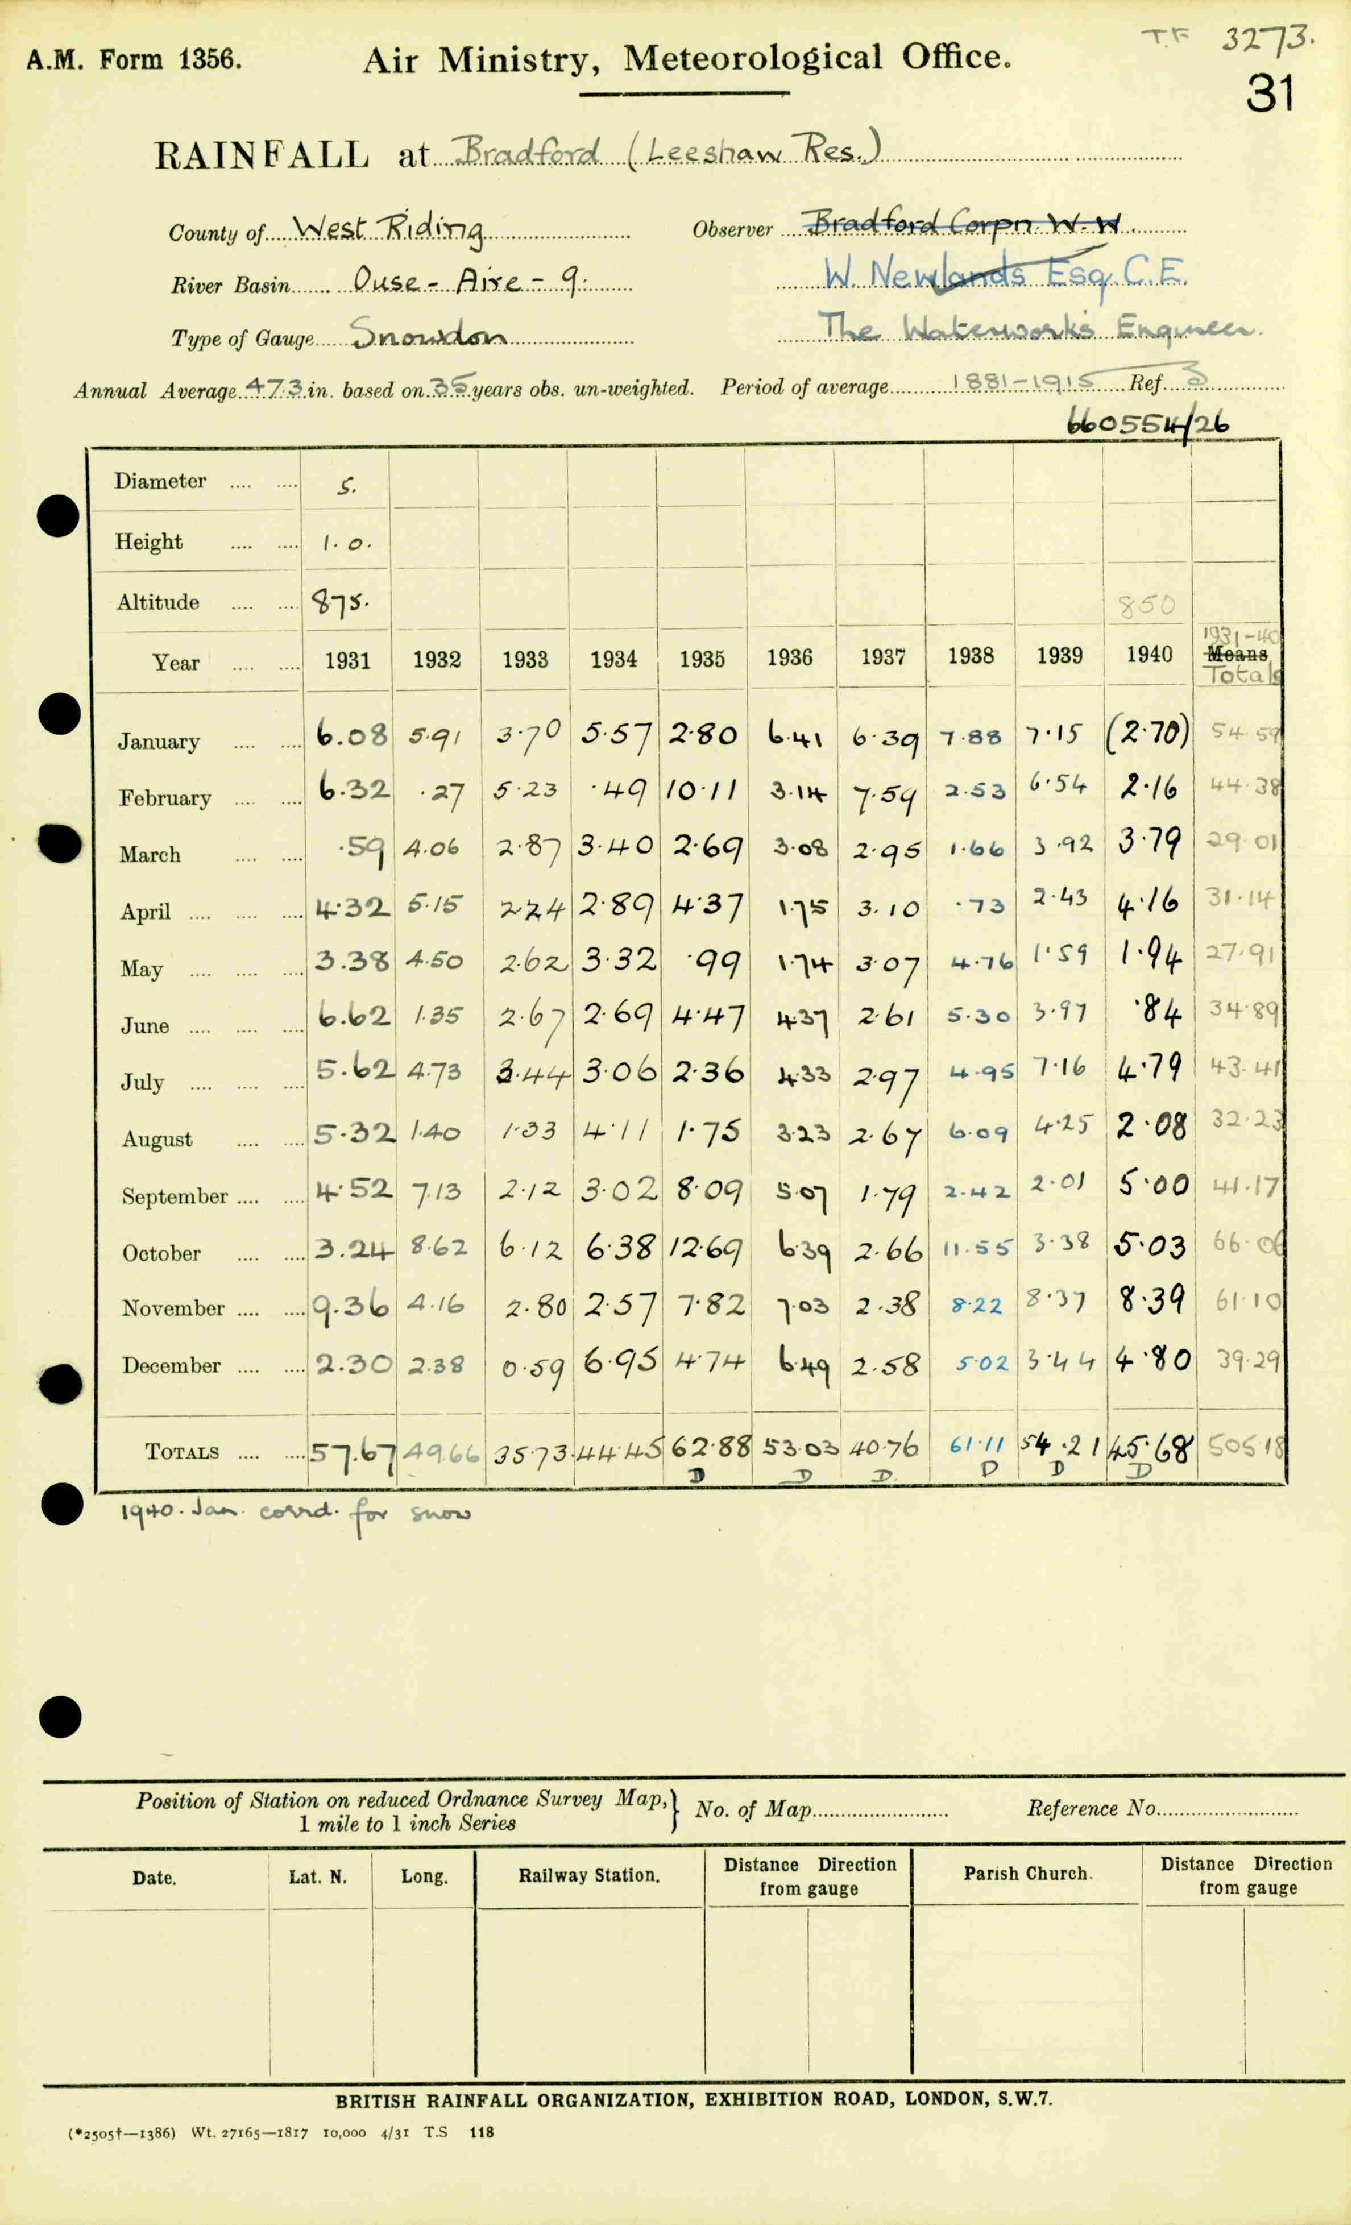 T.F 3273.
A.M. Form 1356. Air Ministry, Meteorological Office.
31
RAINFALL at Bradford (Leeshaw Res.)
County of West Riding Observer Bradford Corpn W.W.
River Basin Ouse - Aire - 9. W. Newlands Esq. C.E.
Type of Gauge Snowdon The Waterworks Engineer.
Annual Average 47.3 in. based on 35 years obs. un-weighted. Period of average 1881-1915 Ref. 3
660554/26
Diameter .... .... 5.
Height .... .... 1.0.
Altitude .... .... 875. 850
Year .... .... 1931 1932 1933 1934 1935 1936 1937 1938 1939 1940 1931-40 Means Totals
January .... .... 6.08 5.91 3.70 5.57 2.80 6.41 6.39 7.88 7.15 (2.70) 54.59
February .... .... 6.32 .27 5.23 .49 10.11 3.14 7.59 2.53 6.54 2.16 44.38
March .... .... .59 4.06 2.87 3.40 2.69 3.08 2.95 1.66 3.92 3.79 29.01
April .... .... .... 4.32 5.15 2.24 2.89 4.37 1.75 3.10 .73 2.43 4.16 31.14
May .... .... .... 3.38 4.50 2.62 3.32 .99 1.74 3.07 4.76 1.59 1.94 27.91
June .... .... .... 6.62 1.35 2.67 2.69 4.47 4.37 2.61 5.30 3.97 .84 34.89
July .... .... .... 5.62 4.73 3.44 3.06 2.36 4.33 2.97 4.95 7.16 4.79 43.41
August .... .... 5.32 1.40 1.33 4.11 1.75 3.23 2.67 6.09 4.25 2.08 32.23
September .... .... 4.52 7.13 2.12 3.02 8.09 5.07 1.79 2.42 2.01 5.00 41.17
October .... .... 3.24 8.62 6.12 6.38 12.69 6.39 2.66 11.55 3.38 5.03 66.06
November .... .... 9.36 4.16 2.80 2.57 7.82 7.03 2.38 8.22 8.37 8.39 61.10
December .... .... 2.30 2.38 0.59 6.95 4.74 6.49 2.58 5.02 3.44 4.80 39.29
TOTALS .... .... 57.67 49.66 35.73 44.45 62.88 53.03 40.76 61.11 54.21 45.68 505.18
D D D D D D
1940. Jan. corrd. for snow
Position of Station on reduced Ordnance Survey Map,} No. of Map Reference No.
1 mile to 1 inch Series
Date. Lat. N. Long. Railway Station. Distance Direction from gauge Parish Church. Distance Direction from gauge
BRITISH RAINFALL ORGANIZATION, EXHIBITION ROAD, LONDON, S.W.7.
(*2505†—1386) Wt. 27165—1817 10,000 4/31 T.S 118